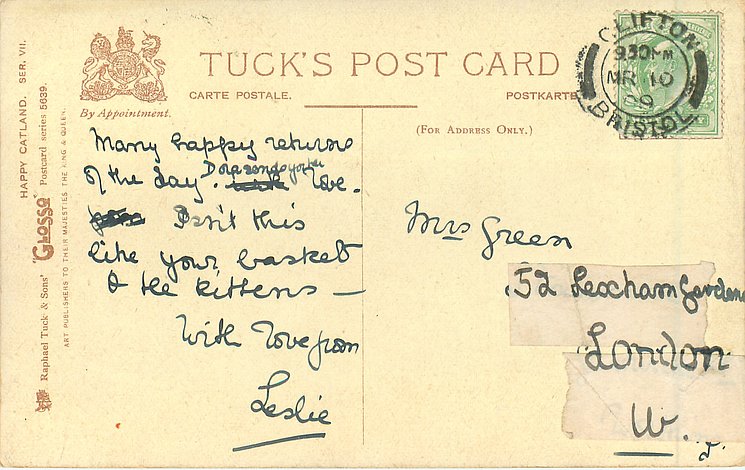 HAPPY CATLAND. SER. VII.
Raphael Tuck & Sons' "GLOSSO" Postcard series 5639.
ART PUBLISHERS TO THEIR MAJESTIES THE KING & QUEEN.
By Appointment.
TUCK'S POST CARD
CARTE POSTALE.
POSTKARTE
(FOR ADDRESS ONLY.)
CLIFTON
9.30PM
MR 10
09
BRISTOL
Many happy returns
of the day. Dora sends you her love.
Isn't this
like your basket
& the kittens —
With love from
Leslie
Mrs Green
52 Lexham Gardens
London
W.